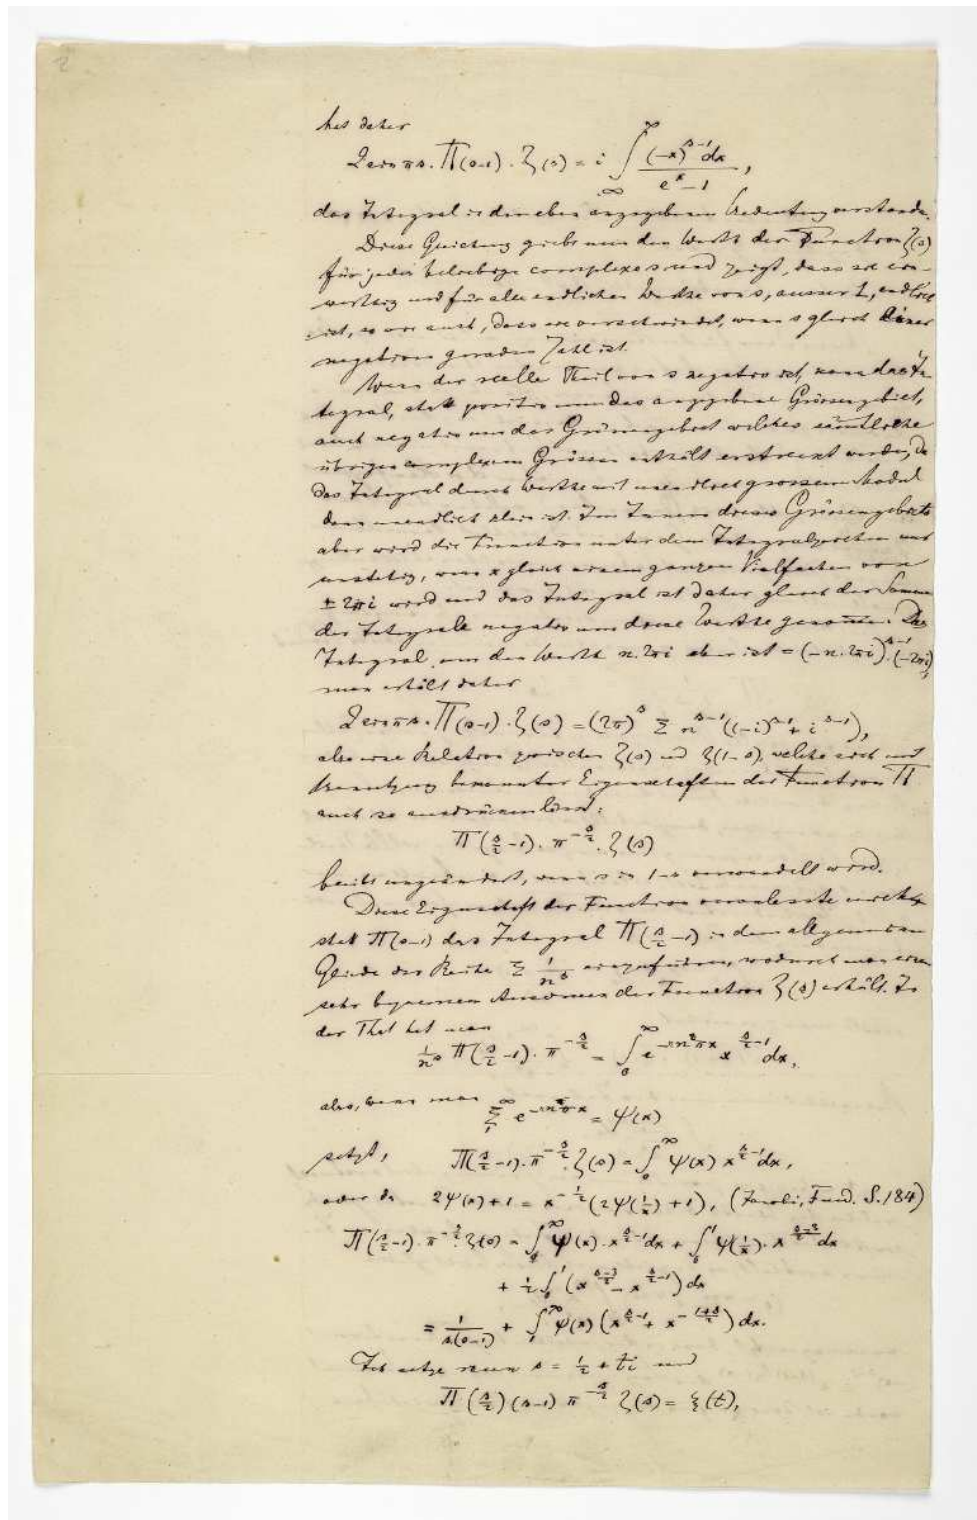 2
hat daher
2 sin πs . Π(s-1) . ζ(s) = i ∫_∞^∞ (-x)^{s-1} dx / (e^x - 1) ,
das Integral in der eben angegebenen Bedeutung verstanden.
Diese Gleichung giebt nun den Werth der Function ζ(s)
für jedes beliebige complexe s und zeigt, dass sie ein-
werthig und für alle endlichen Werthe von s, ausser 1, endlich
ist, so wie auch, dass sie verschwindet, wenn s gleich einer
negativen geraden Zahl ist.
Wenn der reelle Theil von s negativ ist, kann das In-
tegral, statt positiv um das angegebene Grössengebiet,
auch negativ um das Grössengebiet welches sämtliche
übrigen complexen Grössen enthält erstreckt werden, da
das Integral durch Werthe mit unendlich grossem Modul
dann unendlich klein ist. Im Innern dieses Grössengebiets
aber wird die Function unter dem Integralzeichen nur
unstetig, wenn x gleich einem ganzen Vielfachen von
± 2πi wird und das Integral ist daher gleich der Summe
der Integrale negativ um diese Werthe genommen. Das
Integral um den Werth n.2πi aber ist = (-n.2πi)^{s-1}.(-2πi),
man erhält daher
2 sin πs . Π(s-1) . ζ(s) = (2π)^s Σ n^{s-1} ((-i)^{s-1} + i^{s-1}),
also eine Relation zwischen ζ(s) und ζ(1-s), welche sich mit
Benutzung bekannter Eigenschaften der Function Π
auch so ausdrücken lässt:
Π(s/2 -1). π^{-s/2} . ζ(s)
bleibt ungeändert, wenn s in 1-s verwandelt wird.
Diese Eigenschaft der Function veranlasste mich
statt Π(s-1) das Integral Π(s/2 -1) in dem allgemeinen
Gliede der Reihe Σ 1/n^s einzuführen, wodurch man einen
sehr bequemen Ausdruck der Function ζ(s) erhält. In
der That hat man
1/n^s Π(s/2 -1). π^{-s/2} = ∫_0^∞ e^{-n²πx} x^{s/2 -1} dx,
also, wenn man Σ_1^∞ e^{-n²πx} = ψ(x)
setzt, Π(s/2 -1). π^{-s/2}. ζ(s) = ∫_0^∞ ψ(x) x^{s/2 -1} dx,
oder da 2ψ(x)+1 = x^{-1/2} (2ψ(1/x) +1), (Jacobi, Fund. S.184)
Π(s/2 -1). π^{-s/2}. ζ(s) = ∫_1^∞ ψ(x). x^{s/2 -1} dx + ∫_0^1 ψ(1/x). x^{(s-3)/2} dx
+ 1/2 ∫_0^1 (x^{(s-3)/2} - x^{s/2 -1}) dx
= 1/(s(s-1)) + ∫_1^∞ ψ(x) (x^{s/2 -1} + x^{-(1+s)/2}) dx.
Ich setze nun s = 1/2 + ti und
Π(s/2) (s-1) π^{-s/2} ζ(s) = ξ(t),